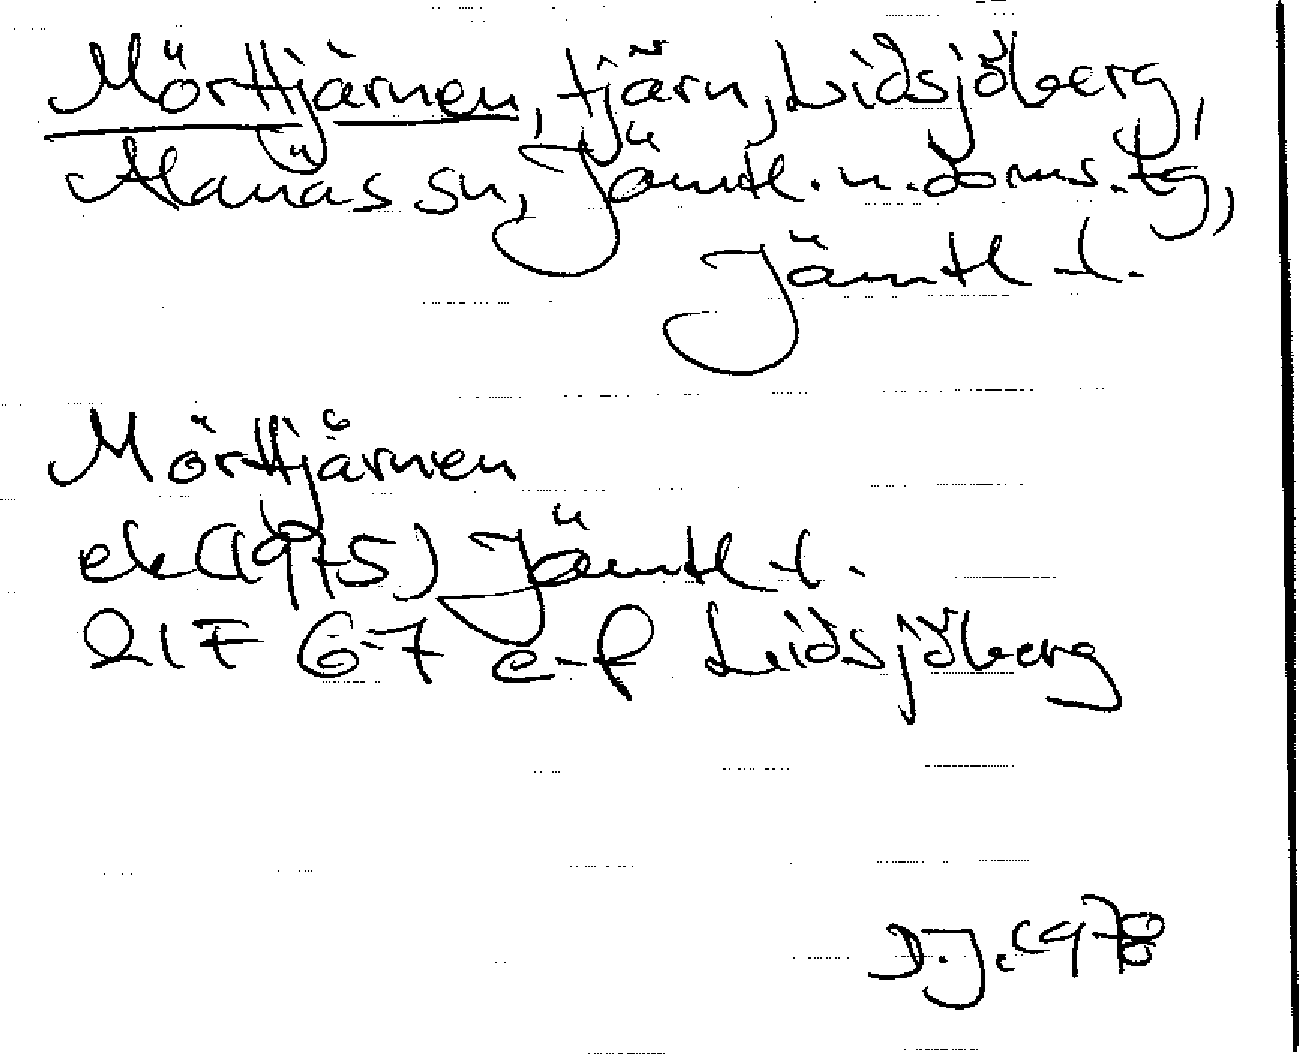 Mörttjärnen, tjärn, Lidsjöberg,
Alanäs sn, Jämtl. n. doms. tg,
Jämtl l.
Mörttjärnen
ek (1975) Jämtl l.
21F 6-7 e-f Lidsjöberg
D.J. 1978